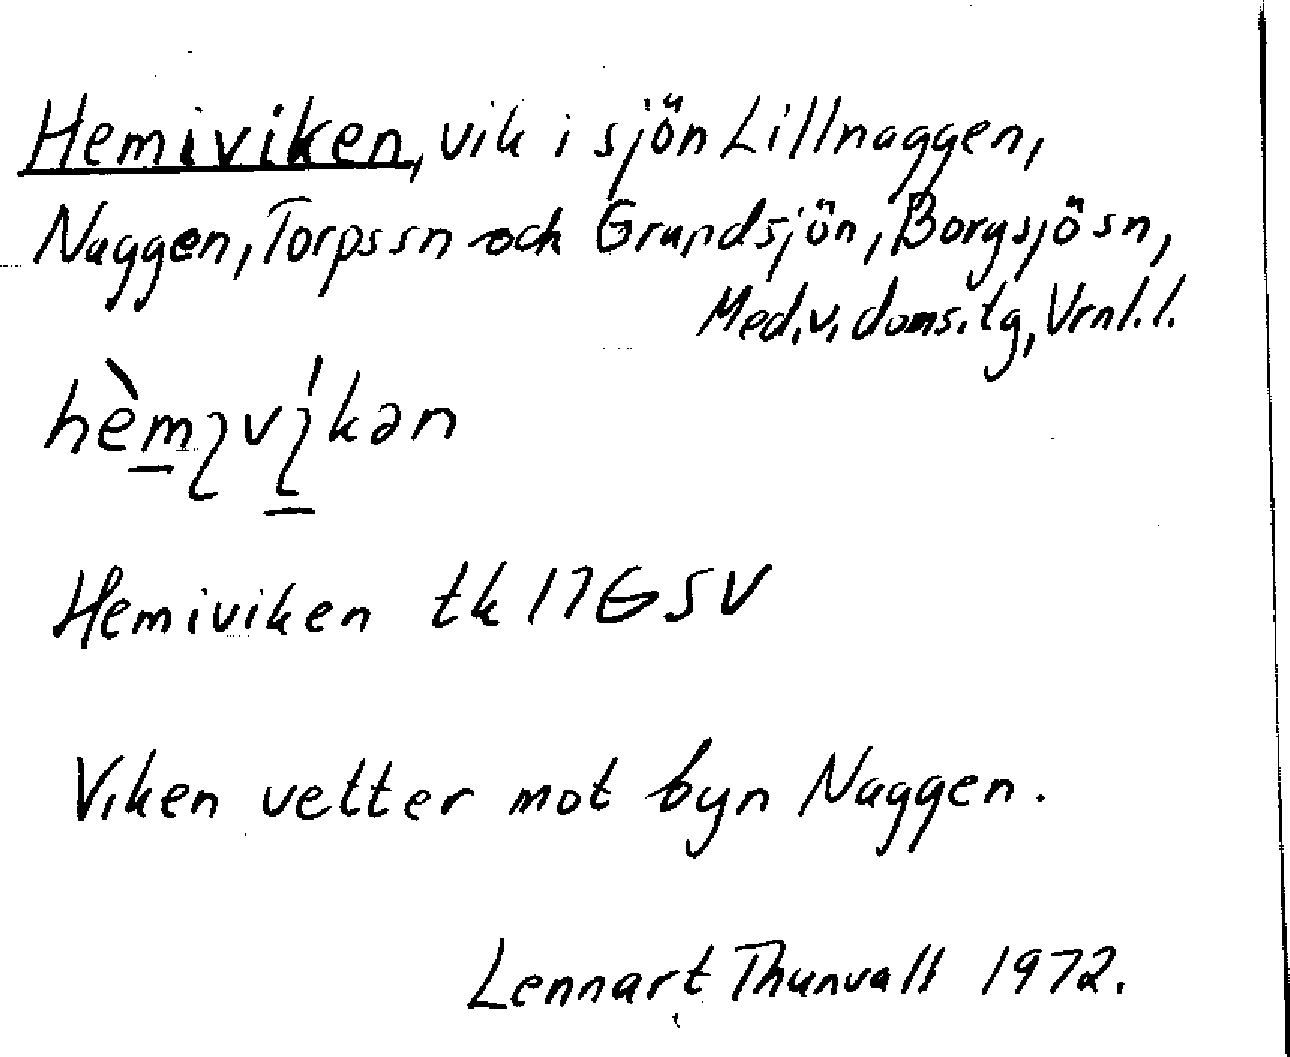 Hemiviken, vik i sjön Lillnaggen,
Naggen, Torps sn och Grundsjön, Borgsjö sn,
Med.v. doms.tg, Vrnl.l.
Hemiviken tk 17G SV
Viken vetter mot byn Naggen.
Lennart Thunvall 1972.